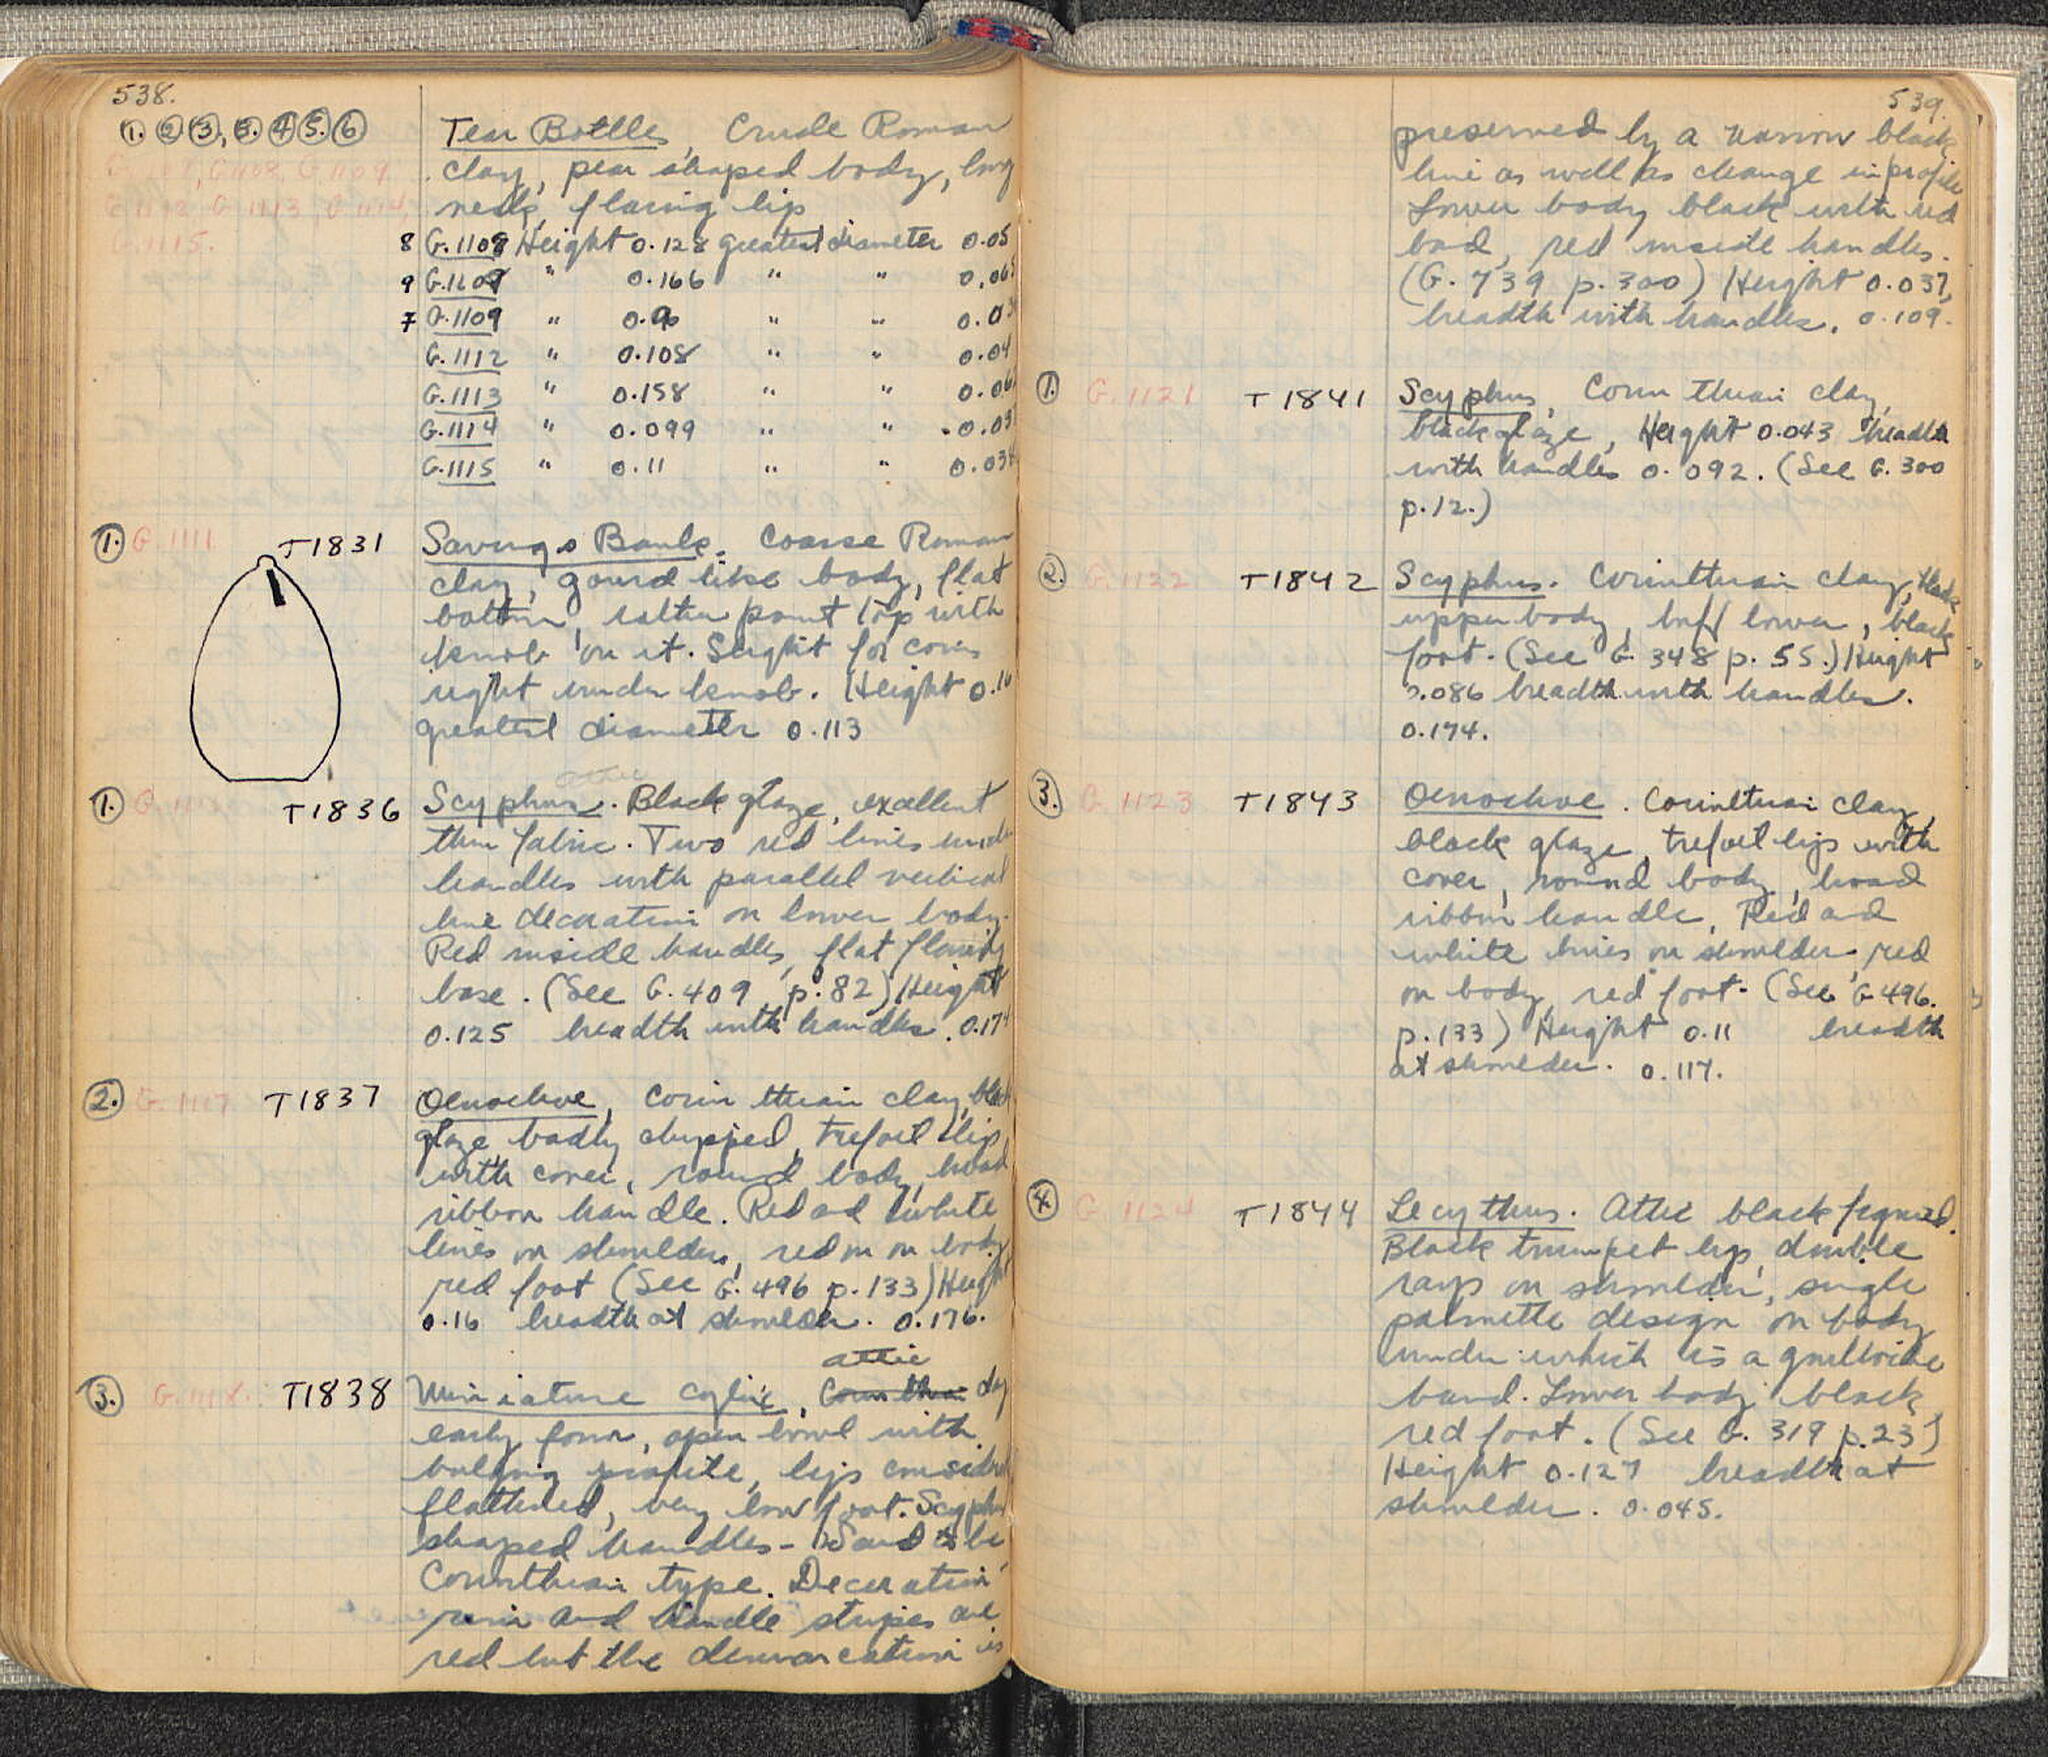 538.
1. 2 3, 3. 4 5. 6
G. 1108, G 1109
G 1112, G 1113, G 1114,
G. 1115.
Tear Bottles, Crude Roman
clay, pear shaped body, long
neck, flaring lip
8 G.1108 Height 0.128 greatest diameter 0.05
9 " 0.166 " "
7 G.1109 " " "
G.1112 " 0.108 " " 0.04
G.1113 " 0.158 " "
G.1114 " 0.099 " "
G.1115 " 0.11 " "
1. G. 1111 T1831 Savings Bank. Coarse Roman
clay, gourd like body, flat
bottom, rather point top with
knob on it. for coins
right under knob. Height
greatest diameter 0.113
1. T1836 Scyphus. attic Black glaze, excellent
thin fabric. Two red lines under
handles with parallel vertical
line decoration on lower body.
Red inside handles, flat flaring
base. (See G. 409 p. 82) Height
0.125 breadth with handles. 0.174
2. G. 1117 T1837 Oenochoe, Corinthian clay, black
glaze, badly chipped, trefoil lip
with cover, round body, broad
ribbon handle. Red and white
lines on shoulder, red on on body,
red foot (See G. 496 p. 133) Height
0.16 breadth at shoulder. 0.176.
3. G. 1118. T1838 Miniature Cylix, Corinthian attic clay
early form, open bowl with
bulging profile, lips
flattened, very low foot. Scyphus
shaped handles - Said to be
Corinthian type. Decoration
rim and handle stripes are
red but the demarcation is
539.
preserved by a narrow black
line as well as change in profile
Lower body black with red
band, red inside handles.
(G. 739 p. 300) Height 0.037,
breadth with handles. 0.109.
1. G. 1121 T1841 Scyphus, Corinthian clay,
black glaze, Height 0.043 breadth
with handles 0.092. (See G. 300
p. 12.)
2. G. 1122 T1842 Scyphus. Corinthian clay, black
upper body, buff lower, black
foot. (See G. 348 p. 55.) Height
0.086 breadth with handles.
0.174.
3. G. 1123 T1843 Oenochoe. Corinthian clay,
black glaze, trefoil lip with
cover, round body, broad
ribbon handle, Red and
white lines on shoulder, red
on body, red foot. (See G 496.
p. 133) Height 0.11 breadth
at shoulder. 0.117.
4 G. 1124 T1844 Lecythus. Attic black figured.
Black trumpet lip, double
rays on shoulder, single
palmette design on body
under which is a guilloche
band. Lower body black
red foot. (See G. 319 p. 23)
Height 0.127 breadth at
shoulder. 0.045.